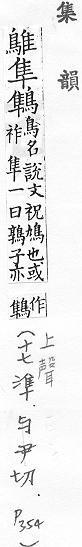 集韻
鵻隼鶽鳥名說文祝鳩也或
祚隼一曰鶉子亦
作鶽
(上聲
十七準.与尹切.P354)